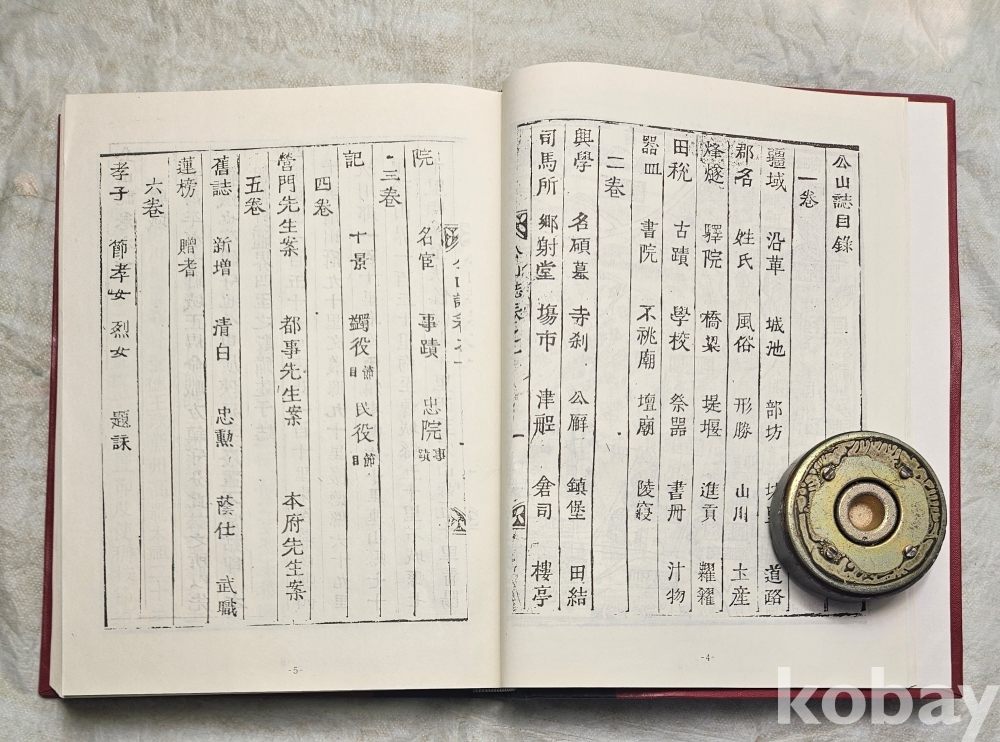 公山誌目錄
一卷
疆域 沿革 城池 部坊 道路
郡名 姓氏 風俗 形勝 山川 土産
烽燧 驛院 橋梁 堤堰 進貢 糶糴
田稅 古蹟 學校 祭器 書册 汁物
器皿 書院 不祧廟 壇廟 陵寢
二卷
興學 名碩墓 寺刹 公廨 鎮堡 田結
司馬所 鄉射堂 塲市 津 倉司 樓亭
公山誌卷之一
一
院 名宦 事蹟 忠院事蹟
三卷
記 十景 蠲役節目 民役節目
四卷
營門先生案 都事先生案 本府先生案
五卷
舊誌 新增 清白 忠勳 蔭仕 武職
蓮榜 贈耆
六卷
孝子 節孝女 烈女 題詠
-4-
-5-
kobay